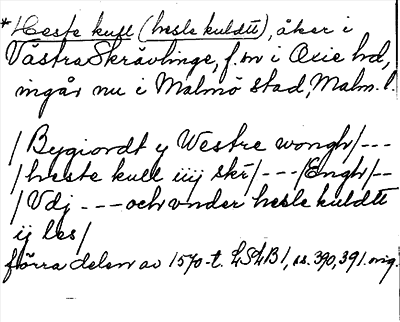 *Heste kull (hesle kuldtt), åker i
Västra Skrävlinge, f.sn i Oxie hd,
ingår nu i Malmö stad, Malm. l.
/Bygiordt y Westre wongh/---
/heste kull iiij skr/---/Engh/--
/Vdj --- och vnder hesle kuldtt
ij les/
förra delen av 1570-t. LSLB1, ss. 390, 391. orig.